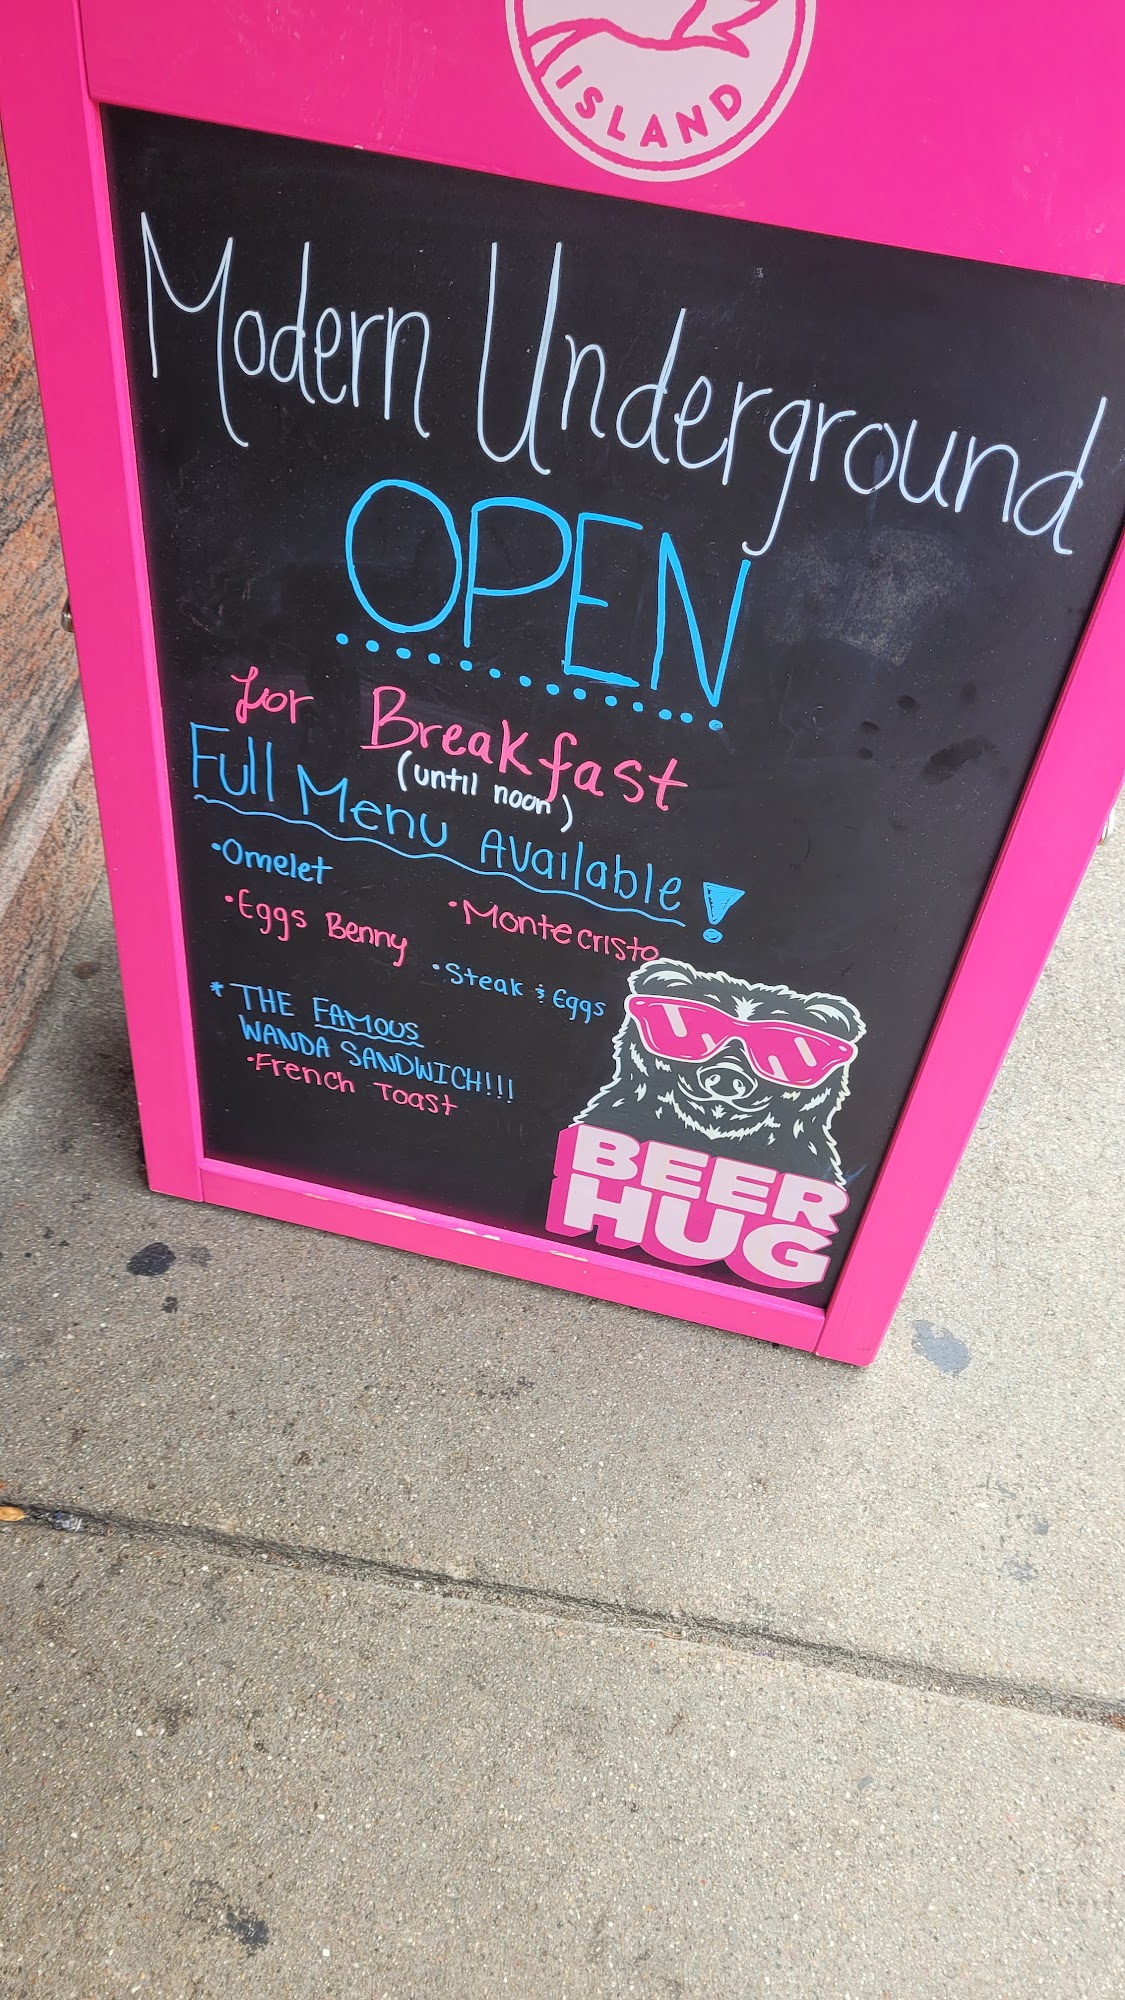 ISLAND
Modern Underground
OPEN
for Breakfast
(until noon)
Full Menu Available!
•Omelet
•Eggs Benny
•Montecristo
•Steak & Eggs
* THE FAMOUS
WANDA SANDWICH!!!
•French Toast
BEER
HUG